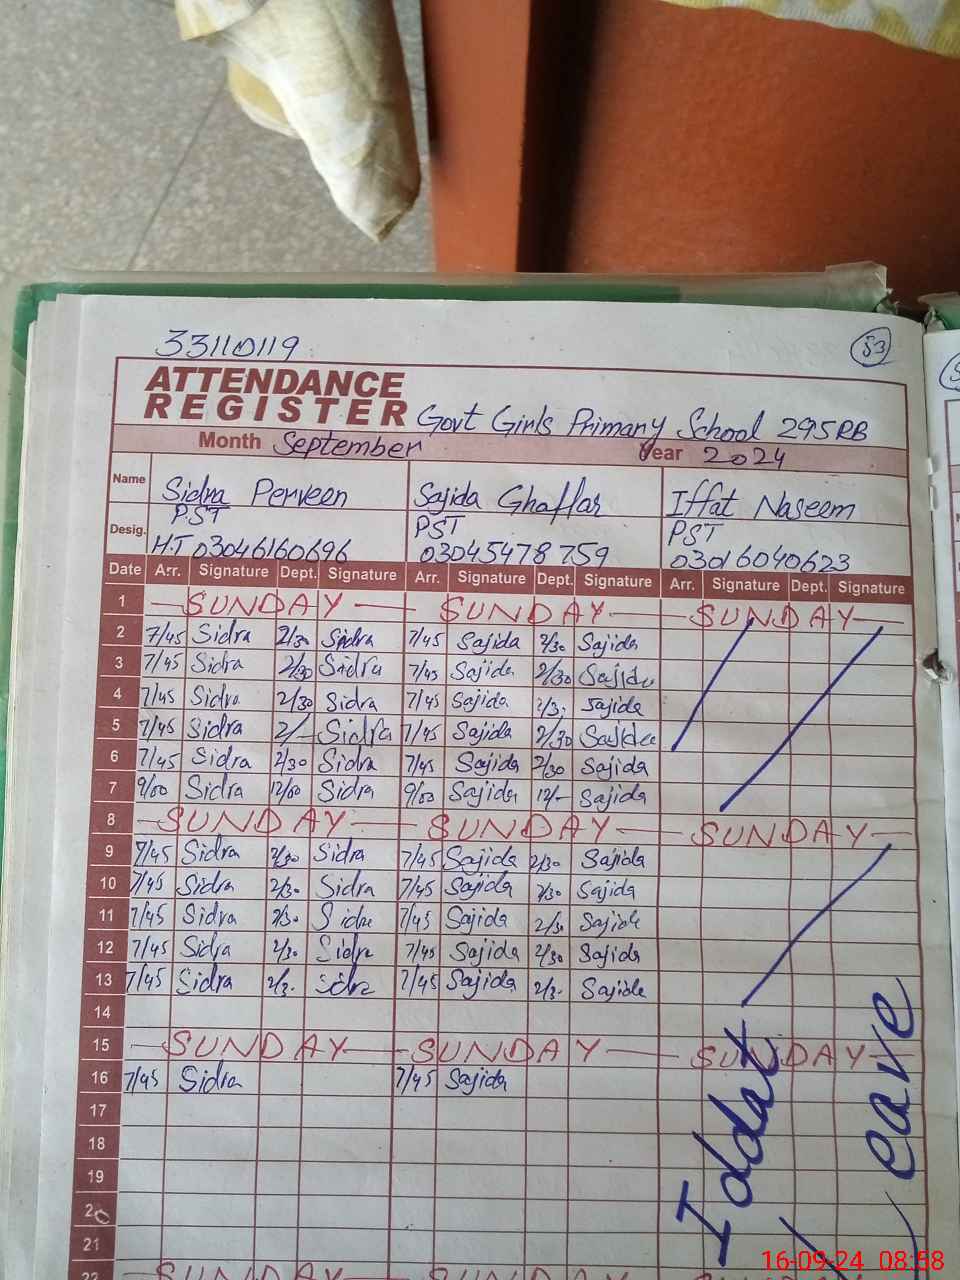 33110119
53
ATTENDANCE
REGISTER Govt Girls Primary School 295RB
Month September Year 2024
Name Sidra Perveen Sajida Ghaffar Iffat Naseem
Desig. PST PST PST
H.T 03046160696 03045478759 03016040623
Date Arr. Signature Dept. Signature Arr. Signature Dept. Signature Arr. Signature Dept. Signature
1 SUNDAY SUNDAY SUNDAY
2 7/45 Sidra 2/30 Sidra 7/45 Sajida 2/30 Sajida
3 7/45 Sidra 2/30 Sidra 7/45 Sajida 2/30 Sajida
4 7/45 Sidra 2/30 Sidra 7/45 Sajida 2/3. Sajida
5 7/45 Sidra 2/- Sidra 7/45 Sajida 2/30 Sajida
6 7/45 Sidra 2/30 Sidra 7/45 Sajida 2/30 Sajida
7 9/00 Sidra 12/00 Sidra 9/00 Sajida 12/- Sajida
8 SUNDAY SUNDAY SUNDAY
9 7/45 Sidra 2/30 Sidra 7/45 Sajida 2/30 Sajida
10 7/45 Sidra 2/30 Sidra 7/45 Sajida 2/30 Sajida
11 7/45 Sidra 2/30 Sidra 7/45 Sajida 2/30 Sajida
12 7/45 Sidra 2/30 Sidra 7/45 Sajida 2/30 Sajida
13 7/45 Sidra 2/3. Sidra 7/45 Sajida 2/3. Sajida
14
15 SUNDAY SUNDAY SUNDAY
16 7/45 Sidra 7/45 Sajida
17
18
19
20
21
22 SUNDAY SUNDAY SUNDAY
Iddat Leave
16-09-24 08:58